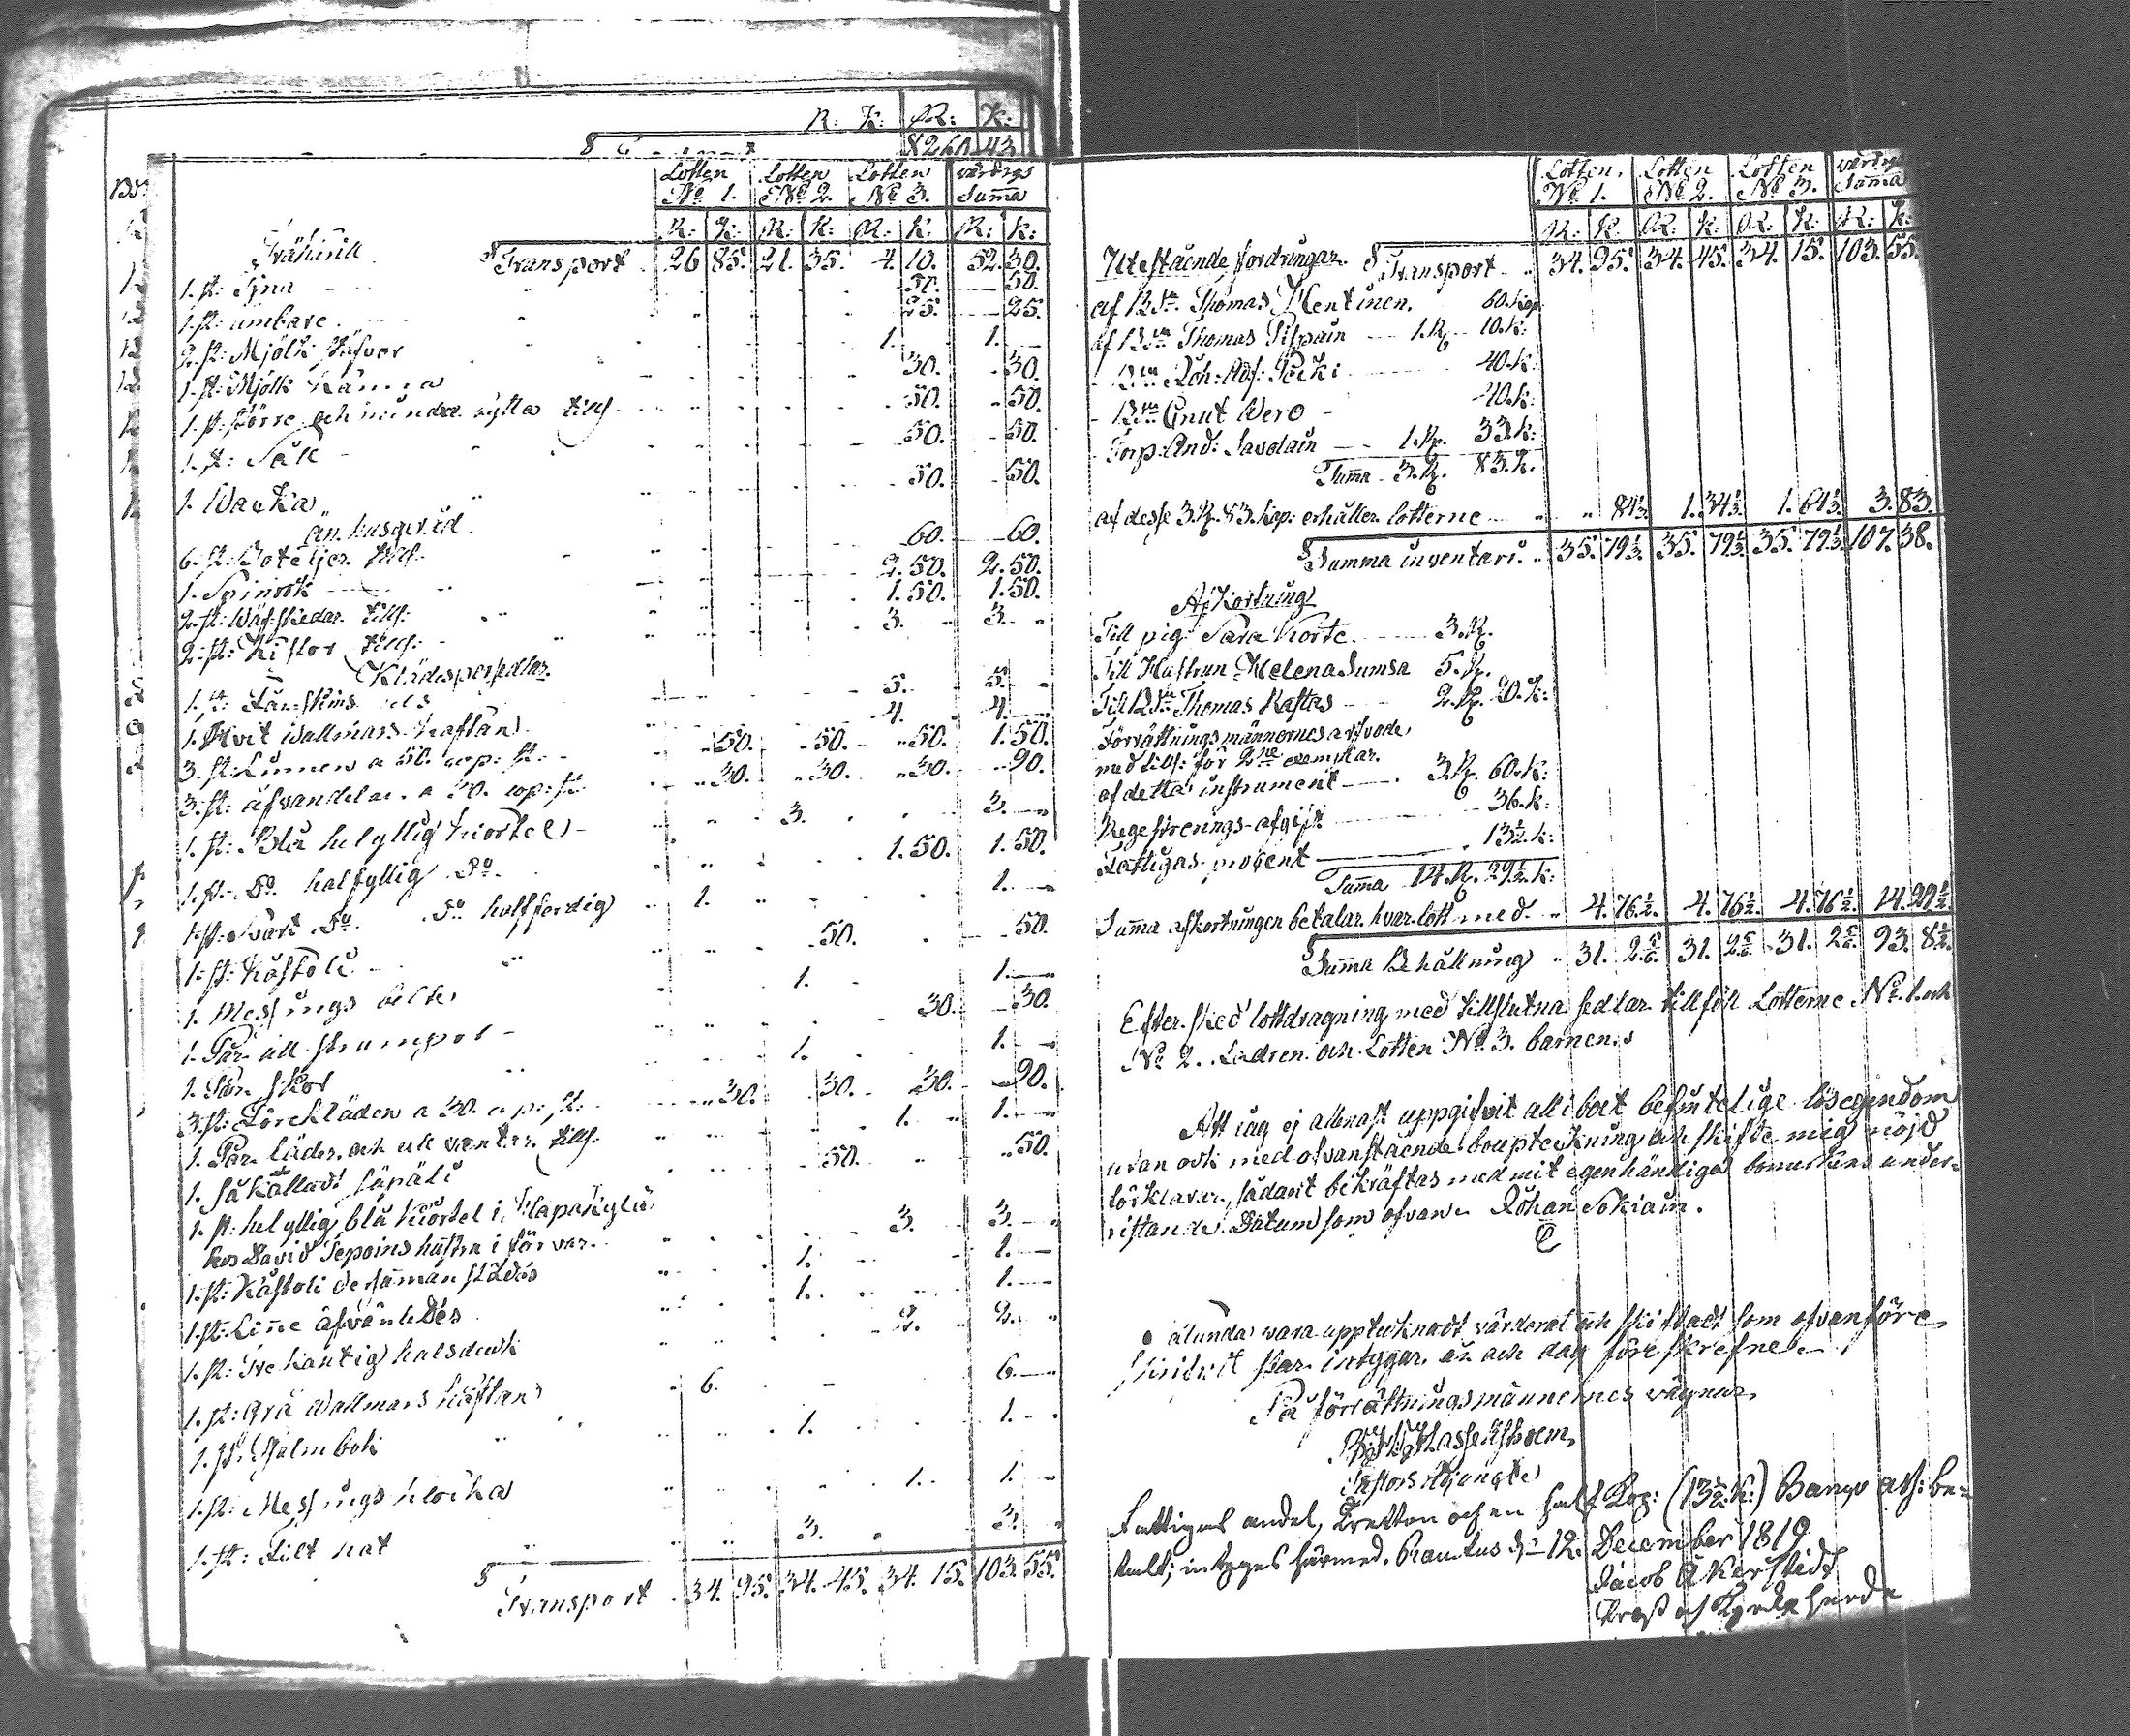 R: K: R: K:
8260 43
Lotten Lotten Lotten wärdegs
No 1. No 2. No 3. Summa
R: K: R: K: R: K: R: K:
Trähushåll Transport 26 85. 21. 35. 4. 10. 52. 30.
1. st: Tjna 50. 50.
1. st: ämbare 25. 25.
2. st: Mjölk stäfvor 1. 1.
1. st: Mjölk Kärna 30. 30.
1. st: större och mindre bytta tills. 50. 50.
1. st: Såll 50. 50.
1. Wacka 50. 50.
an. husgeråd.
6. st: Boteljer tills. 60. 60.
1. Spinrok 2. 50. 2. 50.
2. st: Wäfskedar tills: 1. 50. 1. 50.
2. st: Kistor tills: 3. 3.
Klädespersedlar.
1. st: Fårskins 5. 5.
1. Hvit wallmars kaftan 4. 4.
3. st: Linnen a 50. cop: st: 50. 50. 50. 1. 50.
3. st: a 30. cop: st: 30. 30. 30. 90.
1. st: Blå helyllig kiortel 3. 3.
1. st: Do halfyllig Do 1. 50. 1. 50.
1. st: Svart Do Do halffärdig 1. 1.
1. st: Kåstoli 50. 50.
1. Messings belte 1. 1.
1. Par ull strumpor 30. 30.
1. Par skor 1. 1.
3. st: Förekläden a 30. cop: st: 30. 30. 30. 90.
1. Par läder och ull vantar tills. 1. 1.
1. så kallad 50. 50.
1. st: helyllig blå kiortel i
hos David Sepoins hustru i förvar. 3. 3.
1. st: Kåstoli dersamman städes 1. 1.
1. st: Linne 1. 1.
1. st: Trekantig halsduk 2. 2.
1. st: Grå Wallmars kaftan 6. 6.
1. st: Psalmbok 1. 1.
1. st: Messings klocka 1. 1.
1. st: Filt hat 3. 3.
Transport 34. 95. 34. 45. 34. 15. 103. 55.
Lotten Lotten Lotten wärdegs
No 1. No 2. No 3. Summa
R: K: R: K: R: K: R: K:
Utestående fordringar. Transport 34. 95. 34. 45. 34. 15. 103. 55.
af Bdn Thomas Hentinen. 60. Kop.
af Bdn Thomas 1. R. 10. K:
Bdn Joh: Adf: Pöcki 40. K:
Bdn Cnut Wero 40. K:
Torp: And: Savolain 1. R. 33. K:
Summa 3. R. 83. K.
af desse 3. R. 83. Kop: erhåller lotterne 84⅓ 1. 34⅓ 1. 64⅓ 3. 83.
Summa inventari. 35. 79⅓. 35. 79⅓. 35. 79⅓. 107. 38.
Afkortning
Till pig: Sara Korte 3. R.
Till Hustrun Helena Sumsa 5. R.
Till Bdn Thomas Kastas 2. R. 20. K:
Förrättningsmännernes arfvode
med tills: för 2ne exemplar
af detta instrument 3. R. 60. K:
Regestrerings-afgift 36. K:
Fattigas procent 13½. K:
Summa 14. R. 29½. K:
Summa afkortningen betalar hvar lott med 4. 76½. 4. 76½. 4. 76½. 14. 29½.
Summa Behållning 31. 2⅚. 31. 2⅚. 31. 2⅚. 93. 8½.
Efter sked lottdragning med tillslutna sedlar tillföll Lotterne No. 1. och
No 2. Fadren och Lotten No. 3. barnen.
Att iag ej allenast uppgifvit all i boet befintelige lösegendom
utan och med ofvanstående bouptekning och skifte mig nöjd
förklarar, sådant bekräftas med mit egenhändiga bomerkens under-
ristande. Datum som ofvan. Johan Sokiain.
ålunda vara upptecknadt värderat och skiftadt som ofvanföre
skrifvit står intygar. år och dag föreskrefne.
På förrättningsmännernes vägnar
Pastors Adjungte
Fattigas andel, Tretton och en half Kop: (13½. K:) Banco Ass: be-
talt; intyges härmed. Rautus d. 12. December 1819.
Jacob Åkerstedt
Prost och Kyrkoherde